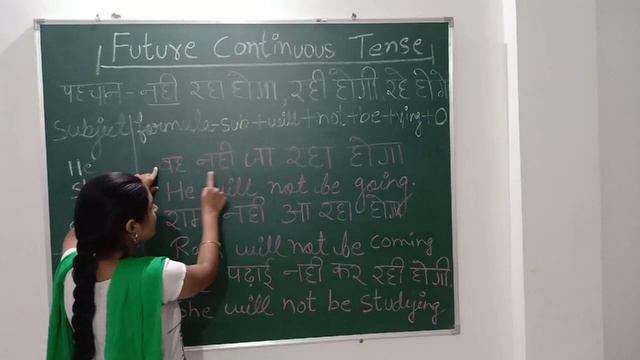 Future Continuous Tense
पहचान - नही रहा होगा, रही होगी रहे होगे
Subject formula - sub + will + not + be + Ving + O
He
वह नही जा रहा होगा
He will not be going.
राम नही आ रहा होगा
will not be coming
पढ़ाई नही कर रही होगी.
She will not be studying